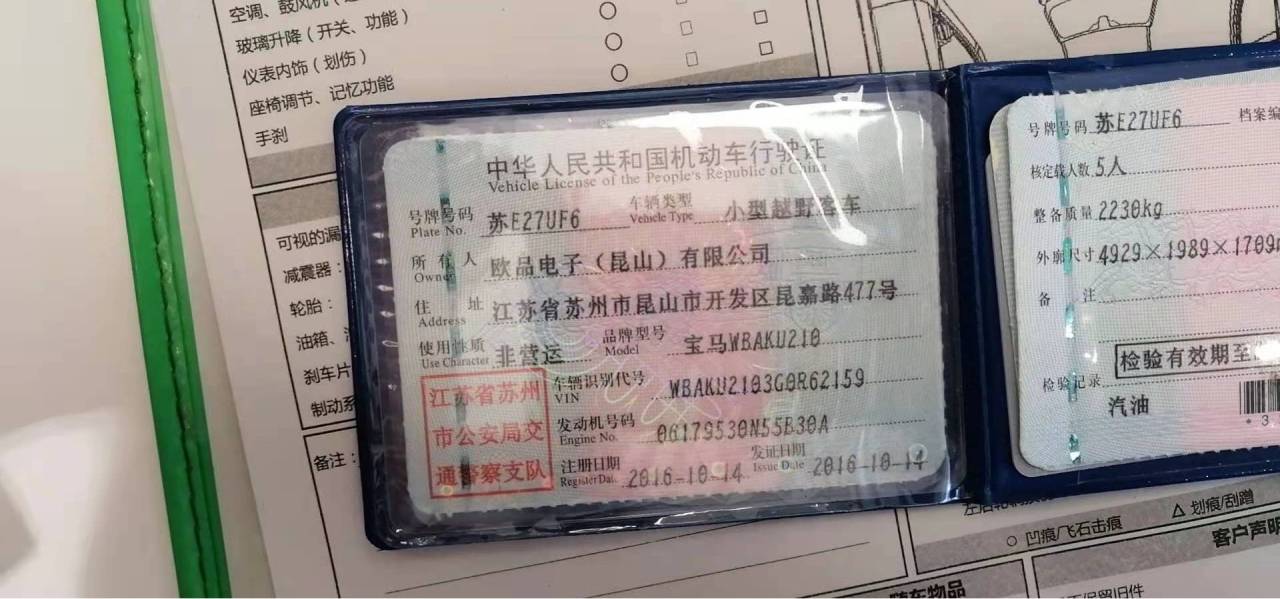 空调、鼓风机
玻璃升降（开关、功能）
仪表内饰（划伤）
座椅调节、记忆功能
手刹
可视的漏
减震器：
轮胎：
油箱、
刹车片
制动系
备注：
中华人民共和国机动车行驶证
Vehicle License of the People's Republic of China
号牌号码 苏E27UF6 车辆类型 小型越野客车
Plate No. Vehicle Type
所有人 欧品电子（昆山）有限公司
Owner
住址 江苏省苏州市昆山市开发区昆嘉路477号
Address
使用性质 非营运 品牌型号 宝马WBAKU210
Use Character Model
江苏省苏州
市公安局交
通警察支队
车辆识别代号 WBAKU2103G0R62159
VIN
发动机号码 06179530N55B30A
Engine No.
注册日期 2016-10-14 发证日期 2016-10-14
Register Date Issue Date
号牌号码 苏E27UF6 档案编
核定载人数 5人
整备质量 2230kg
外廓尺寸 4929×1989×1709
备注
检验有效期至
检验记录
汽油
凹痕/飞石击痕 △ 划痕/刮蹭
客户声明
随车物品
保留旧件